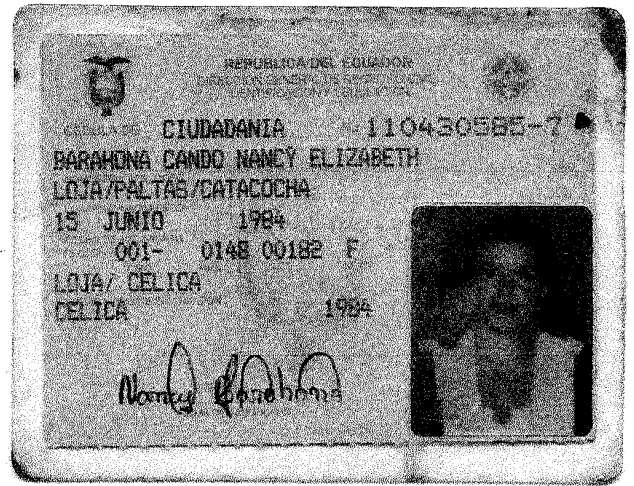 REPUBLICA DEL ECUADOR
CIUDADANIA 110430585-7
BARAHONA CANDO NANCY ELIZABETH
LOJA/PALTAS/CATACOCHA
15 JUNIO 1984
001- 0148 00182 F
LOJA/ CELICA
CELICA 1984
Nancy Barahona